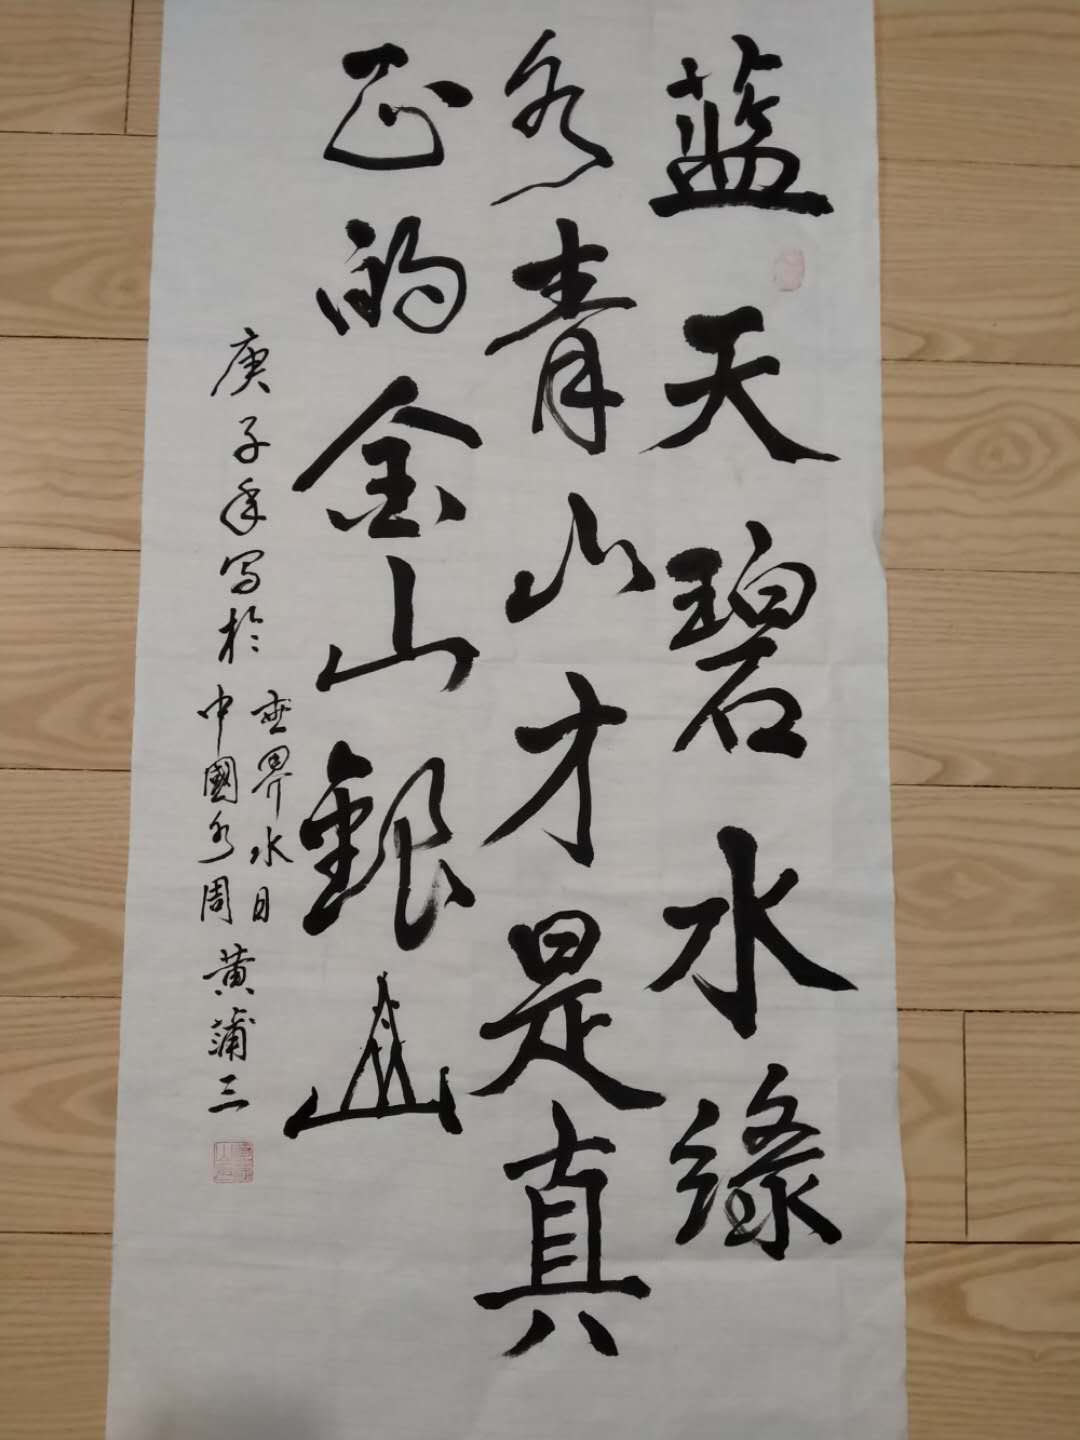 蓝天碧水緑
水青山才是真
正的金山銀山
庚子年写於
世界水日
中國水周
黄蒲三